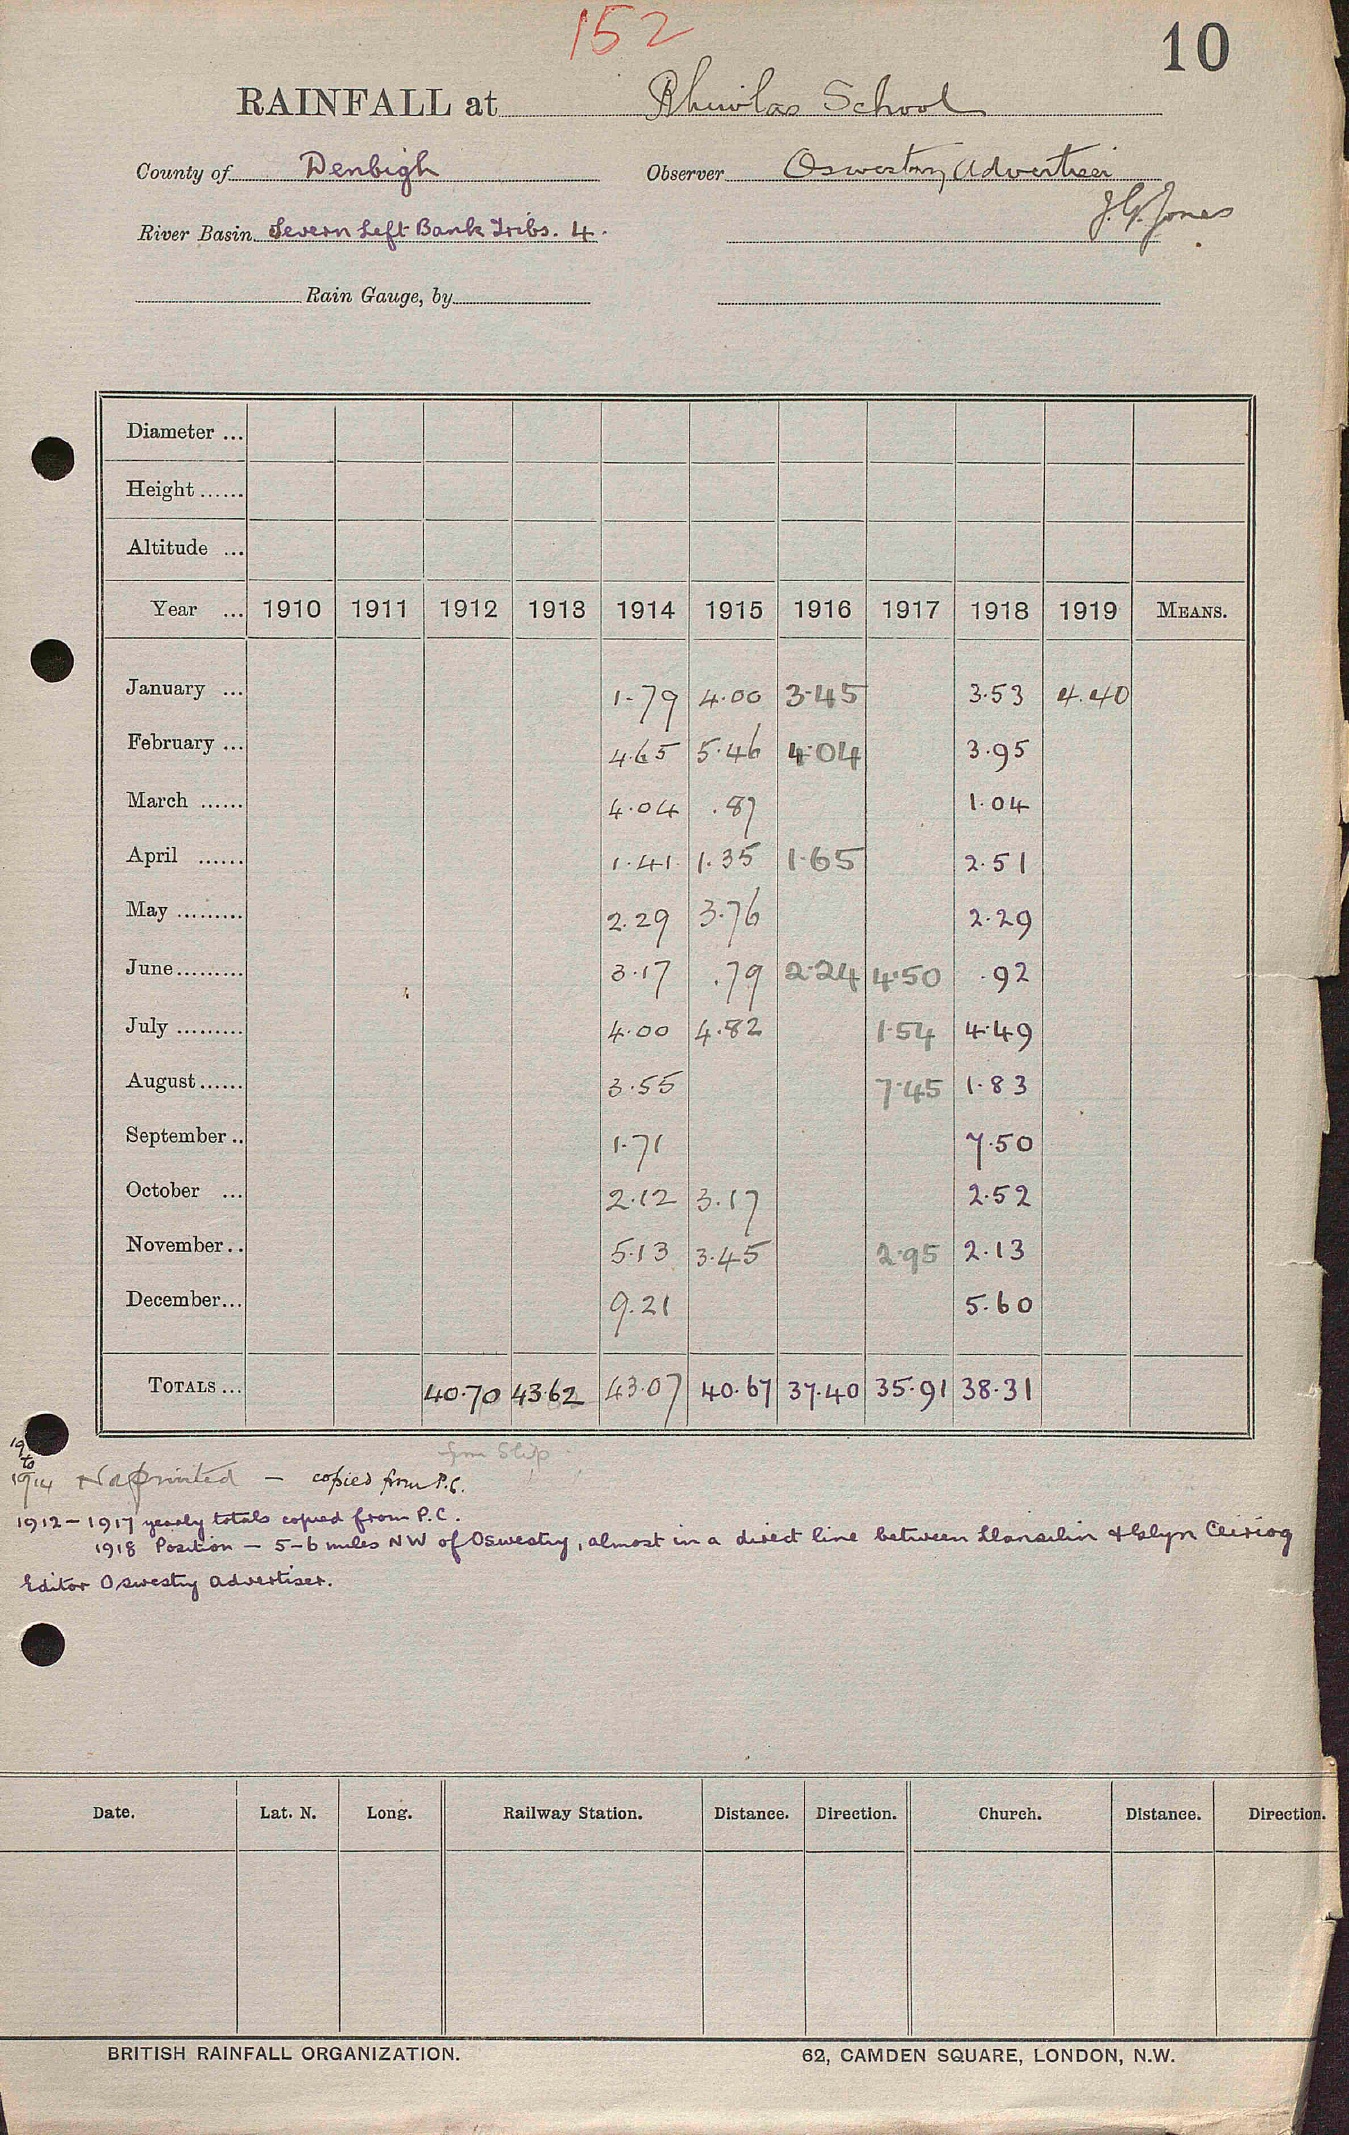 152
10
RAINFALL at Rhiwlas School
County of Denbigh Observer Oswestry Advertiser
J.G. Jones
River Basin Severn Left Bank Tribs. 4.
Rain Gauge, by
Diameter ...
Height ......
Altitude ...
Year ... 1910 1911 1912 1913 1914 1915 1916 1917 1918 1919 MEANS.
January ... 1.79 4.00 3.45 3.53 4.40
February ... 4.65 5.46 4.04 3.95
March ...... 4.04 .87 1.04
April ...... 1.41 1.35 1.65 2.51
May ......... 2.29 3.76 2.29
June ......... 3.17 .79 2.24 4.50 .92
July ......... 4.00 4.82 1.54 4.49
August ...... 3.55 7.45 1.83
September .. 1.71 7.50
October ... 2.12 3.17 2.52
November .. 5.13 3.45 2.95 2.13
December ... 9.21 5.60
TOTALS ... 40.70 43.62 43.07 40.67 37.40 35.91 38.31
from Slip
19
to
1914 Not printed — copied from P.C.
1912–1917 yearly totals copied from P.C.
1918 Position — 5–6 miles NW of Oswestry, almost in a direct line between Llansilin & Glyn Ceiriog
Editor Oswestry Advertiser.
Date. Lat. N. Long. Railway Station. Distance. Direction. Church. Distance. Direction.
BRITISH RAINFALL ORGANIZATION. 62, CAMDEN SQUARE, LONDON, N.W.